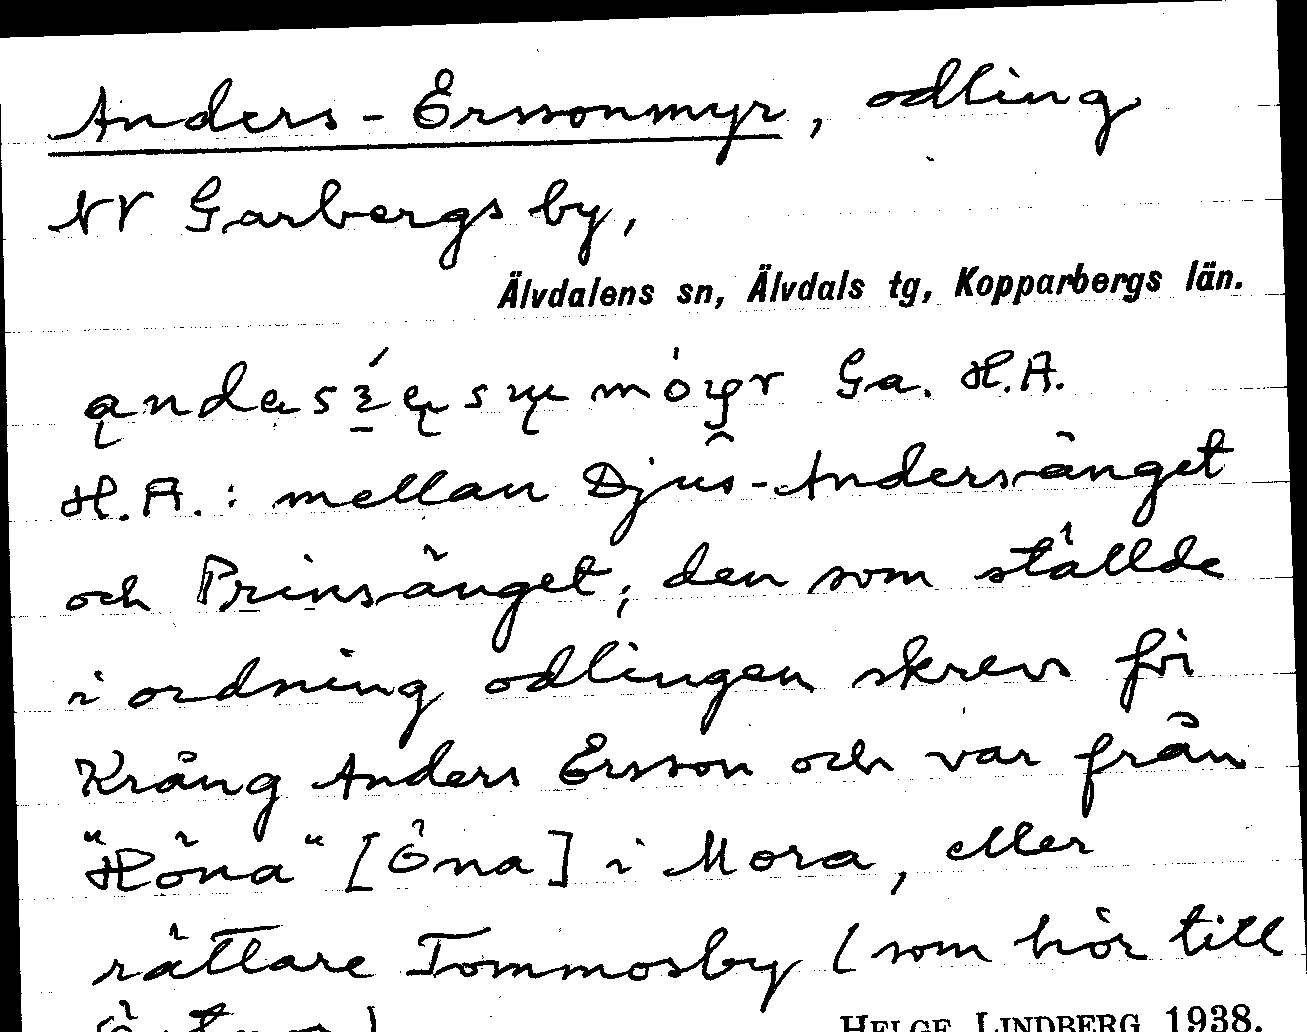 Anders-Erssonmyr, odling
NV Garbergs by,
Älvdalens sn, Älvdals tg, Kopparbergs län.
Ga. H.A.
H.A.: mellan Djus-Andersänget
och Prinsänget; den som ställde
i ordning odlingen skrevs för
Krång Anders Ersson och var från
"Höna" [Öna] i Mora, eller
rättare Tommosby (som hör till
HELGE LINDBERG 1938.